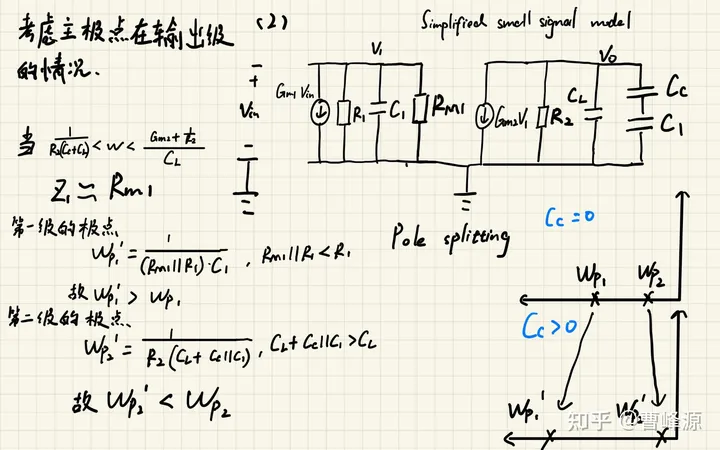 考虑主极点在输出级
的情况.
(2)
Simplified small signal model
V₁
Vo
+
Vin
-
Gm1 Vin
R₁
C₁
RM1
Gm2V₁
R₂
CL
Cc
C₁
当 1/(R₂(Cc+CL)) < w < (Gm2+1/R₂)/CL
Z₁ ≃ Rm1
第一级的极点
Wp₁' = 1/((Rm1||R₁)·C₁) , Rm1||R₁<R₁
故 Wp₁' > Wp₁
第二级的极点
Wp₂' = 1/(R₂(CL+Cc||C₁)) , CL+Cc||C₁>CL
故 Wp₂' < Wp₂
Pole splitting
Cc=0
Wp₁ Wp₂
Cc>0
Wp₁' Wp₂'
知乎 @曹峰源